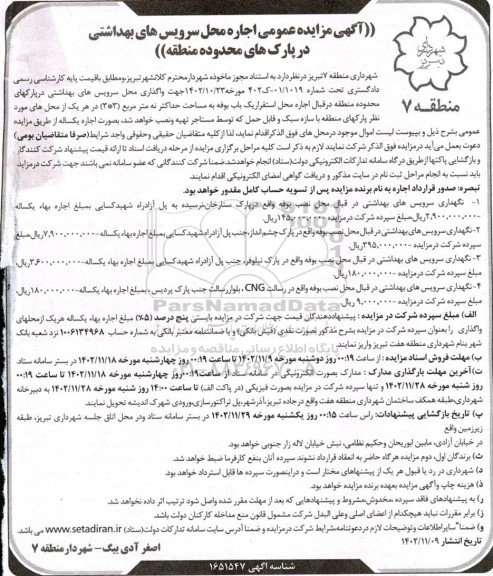 ((آگهی مزایده عمومی اجاره محل سرویس های بهداشتی
در پارک های محدوده منطقه))
شهرداری تبریز
منطقه ۷
شهرداری منطقه ۷ تبریز در نظر دارد به استناد مجوز ماخوذه شهردار محترم کلانشهر تبریز، ومطابق باقیمت پایه کارشناسی رسمی
دادگستری تحت شماره ۰۱/۱۰۱۹-ک۰۲ مورخه ۱۴۰۲/۱۰/۲۳ جهت واگذاری محل سرویس های بهداشتی در پارکهای
محدوده منطقه در قبال اجاره محل استقرار یک باب بوفه به مساحت حداکثر نه متر مربع (۳*۳) در هر یک از محل های مورد
نظر پارکهای منطقه با سازه سبک و قابل حمل که توسط مستاجر تهیه ونصب خواهد شد، بصورت اجاره یکساله از طریق مزایده
عمومی بشرح ذیل و بپیوست لیست اموال موجود در محل های فوق الذکر اقدام نماید، لذا از کلیه متقاضیان حقیقی وحقوقی واجد شرایط (صرفا متقاضیان بومی)
دعوت بعمل می آید در مزایده فوق الذکر شرکت نمایند لازم به ذکر است کلیه مراحل برگزاری مزایده از مرحله دریافت اسناد تا ارائه قیمت پیشنهاد شرکت کنندگان
و بازگشایی پاکتها از طریق درگاه سامانه تدارکات الکترونیکی دولت (ستاد) انجام خواهد شد. ضمنا شرکت کنندگانی که عضو سامانه نمی باشند جهت شرکت در مزایده
باید نسبت به انجام مراحل ثبت نام در سایت مذکور و دریافت گواهی امضای الکترونیکی اقدام نمایند.
تبصره: صدور قرارداد اجاره به نام برنده مزایده پس از تسویه حساب کامل مقدور خواهد بود.
۱- نگهداری سرویس های بهداشتی در قبال محل نصب بوفه واقع در پارک ستارخان، نرسیده به پل آزادراه شهیدکسایی بمبلغ اجاره بهاء یکساله
۲,۹۰۰,۰۰۰,۰۰۰ریال، مبلغ سپرده شرکت در مزایده ۱۴۵,۰۰۰,۰۰۰ریال
۲-نگهداری سرویس های بهداشتی در قبال محل نصب بوفه واقع در پارک چشم انداز، جنب پل آزادراه شهیدکسایی بمبلغ اجاره بهاء یکساله ۷,۹۰۰,۰۰۰,۰۰۰ریال، مبلغ
سپرده شرکت در مزایده ۳۹۵,۰۰۰,۰۰۰ریال
۳-نگهداری سرویس های بهداشتی در قبال محل نصب بوفه واقع در پارک نیلوفر، جنب پل آزادراه شهید کسایی بمبلغ اجاره بهاء یکساله ۳,۶۰۰,۰۰۰,۰۰۰ریال،
مبلغ سپرده شرکت در مزایده ۱۸۰,۰۰۰,۰۰۰ریال
۴-نگهداری سرویس های بهداشتی در قبال محل نصب بوفه واقع در رسالت CNG، بلوار رسالت جنب پارک پردیس، بمبلغ اجاره بهاء یکساله ۱۸۰,۰۰۰,۰۰۰ریال،
مبلغ سپرده شرکت در مزایده ۹,۰۰۰,۰۰۰ ریال
الف) مبلغ سپرده شرکت در مزایده : پیشنهاددهندگان قیمت جهت شرکت در مزایده بایستی پنج درصد (۵٪) مبلغ اجاره بهاء یکساله هریک از محلهای
واگذاری را بعنوان سپرده شرکت در مزایده بشرح مذکور بصورت نقدی (فیش بانکی) و یا ضمانتنامه معتبر بانکی به شماره حساب ۱۰۰۶۱۳۴۹۶۸ نزد شعبه بانک
شهر بنام شهرداری منطقه هفت تبریز واریز نمایند.
ب) مهلت فروش اسناد مزایده : از ساعت ۰۰:۱۹ روز دوشنبه مورخه ۱۴۰۲/۱۱/۹ تا ساعت ۰۰:۱۹ روز چهارشنبه مورخه ۱۴۰۲/۱۱/۱۸ در بستر سامانه ستاد
ت) آخرین مهلت بارگذاری مدارک : مدارک بصورت الکترونیکی در سامانه ستاد از ساعت ۰۰:۱۹ روز چهارشنبه مورخه ۱۴۰۲/۱۱/۱۸ تا ساعت ۰۰:۱۹
روز شنبه مورخه ۱۴۰۲/۱۱/۲۸ و تنها سپرده شرکت در مزایده بصورت فیزیکی (در پاکت الف) تا ساعت ۱۴:۰۰ روز شنبه مورخه ۱۴۰۲/۱۱/۲۸ به دبیرخانه
شهرداری، طبقه همکف ساختمان شهرداری منطقه هفت واقع در جاده تبریز، آذرشهر، پل تراکتورسازی، ورودی شهرک اندیشه تحویل نمایند.
پ) تاریخ بازگشایی پیشنهادات: راس ساعت ۰۰:۱۵ روز یکشنبه مورخه ۱۴۰۲/۱۱/۲۹ در بستر سامانه ستاد ودر محل اتاق جلسه شهرداری تبریز، طبقه
زیرزمین واقع
در خیابان آزادی، مابین ابوریحان وحکیم نظامی، نبش خیابان لاله زار جنوبی خواهد بود.
ث) برندگان اول، دوم مزایده هرگاه حاضر به انعقاد قرارداد نشوند سپرده آنان بنفع کارفرما ضبط خواهد شد.
د) شهرداری در رد یا قبول هر یک از پیشنهادهای مختار است و دراینصورت سپرده ها قابل استرداد خواهد بود.
ذ) هزینه چاپ وآگهی مزایده بعهده برنده مزایده خواهد بود.
ر) به پیشنهادهای فاقد سپرده، مخدوش، مشروط و پیشنهادهایی که بعد از مهلت مقرر واصل شود ترتیب اثر داده نخواهد شد.
ز) برابر مقررات نباید هیچکدام از اعضای اصلی وعلی البدل شرکت مشمول قانون منع مداخله کارکنان دولت باشد.
و) ضمنا"سایراطلاعات و توضیحات لازم دردعوتنامه،شرایط شرکت درمزایده و ضمنا آدرس سایت سامانه تدارکات دولت(ستاد) www.setadiran.ir می باشد.
تاریخ انتشار ۱۴۰۲/۱۱/۰۹
اصغر آدی بیگ - شهردار منطقه ۷
شناسه آگهی ۱۶۵۱۵۴۷
ParsNamadData
پایگاه اطلاع رسانی مناقصه و مزایده